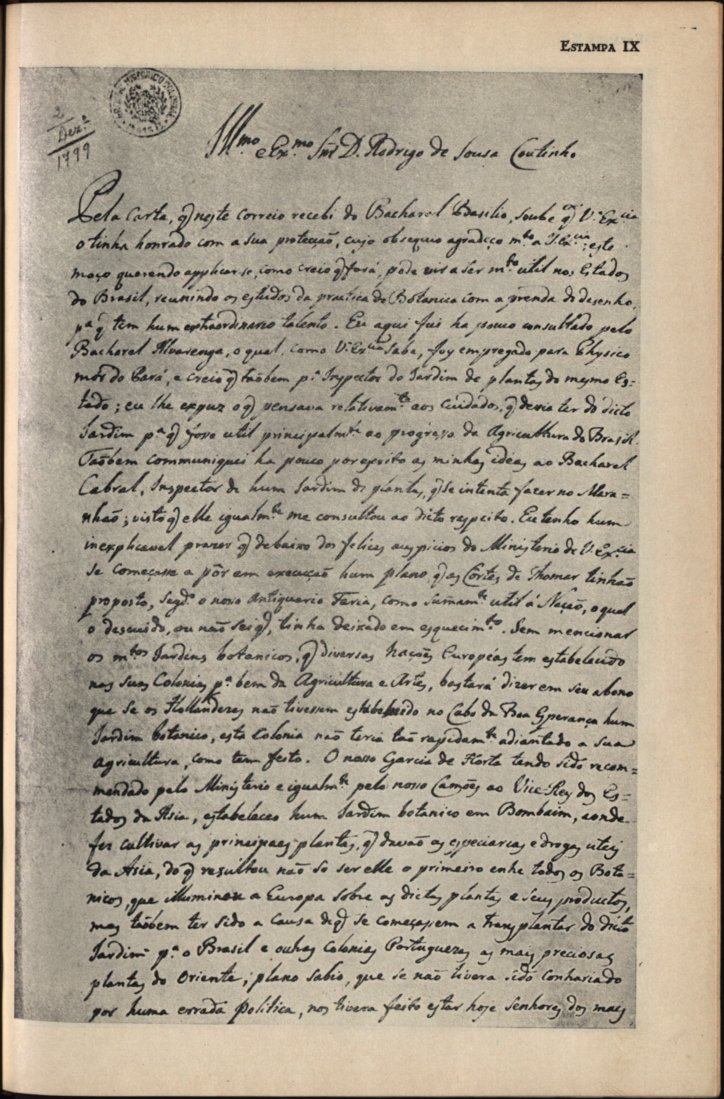 ESTAMPA IX
2
Dez.º
1799
Ill.mo e Ex.mo Snr D. Rodrigo de Sousa Coutinho
Pela carta, q̃ neste correio recebi do Bacharel Basilio, soube q̃ V. Ex.cia
o tinha honrado com a sua protecção, cujo obsequio agradeço m.to a V. Ex.cia; este
moço querendo applicar-se, como creio q̃ fará, póde vir a ser m.to util nos Estados
do Brasil, reunindo os estudos da practica de Botanica com a prenda do desenho,
p.a q̃ tem hum extraordinario talento. Eu aqui fui ha pouco consultado pelo
Bacharel Alvarenga, o qual, como V. Ex.cia sabe, foy empregado para Physico
mór do Pará, e creio q̃ taõbem p.a Inspector do Jardim de plantas do mesmo Es-
tado; eu lhe expuz o q̃ pensava relativam.te aos cuidados, q̃ devia ter do dicto
Jardim p.a q̃ fosse util principalm.te ao progresso da Agricultura do Brasil.
Taõbem communiquei ha pouco por escrito as minhas ideas ao Bacharel
Cabral, Inspector de hum Jardim de plantas, q̃ se intenta fazer no Mara=
nhaõ; visto q̃ elle igualm.te me consultou ao dicto respeito. Eu tenho hum
inexplicavel prazer q̃ debaixo dos felices auspicios do Ministerio de V. Ex.cia
se começasse a pôr em execuçaõ hum plano q̃ as Cortes de Thomar tinhaõ
proposto, seg.do o nosso Antiquario Faria, como summam.te util á Naçaõ, o qual
o descuido, ou naõ sei q̃, tinha deixado em esquecim.to. Sem mencionar
os m.tos Jardins botanicos, q̃ diversas Nações Européas tem estabelecido
nas suas Colonias p.a bem da Agricultura e Artes, bastará dizer em seu abono
que se os Hollandezes naõ tivessem estabelecido no Cabo da Boa Esperança hum
Jardim botanico, esta Colonia naõ teria taõ rapidam.te adiantado a sua
agricultura, como tem feito. O nosso Garcia de Horta tendo sido recom=
mendado pelo Ministerio e igualm.te pelo nosso Camões ao Vice-Rey dos Es=
tados da Asia, estabeleceo hum Jardim botanico em Bombaim, aonde
fez cultivar as principaes plantas, q̃ davaõ as especiarias e drogas uteis
da Asia, do q̃ resultou naõ so ser elle o primeiro entre todos os Bota=
nicos, que illuminou a Europa sobre as dictas plantas e seus productos,
mas taõbem ter sido a causa de q̃ se começassem a transplantar do dicto
Jardim p.a o Brasil e outras Colonias Portuguezas as mais preciosas
plantas do Oriente; plano sabio, que se naõ tivera sido contrariado
por huma errada Politica, nos tivera feito estar hoje senhores dos mais